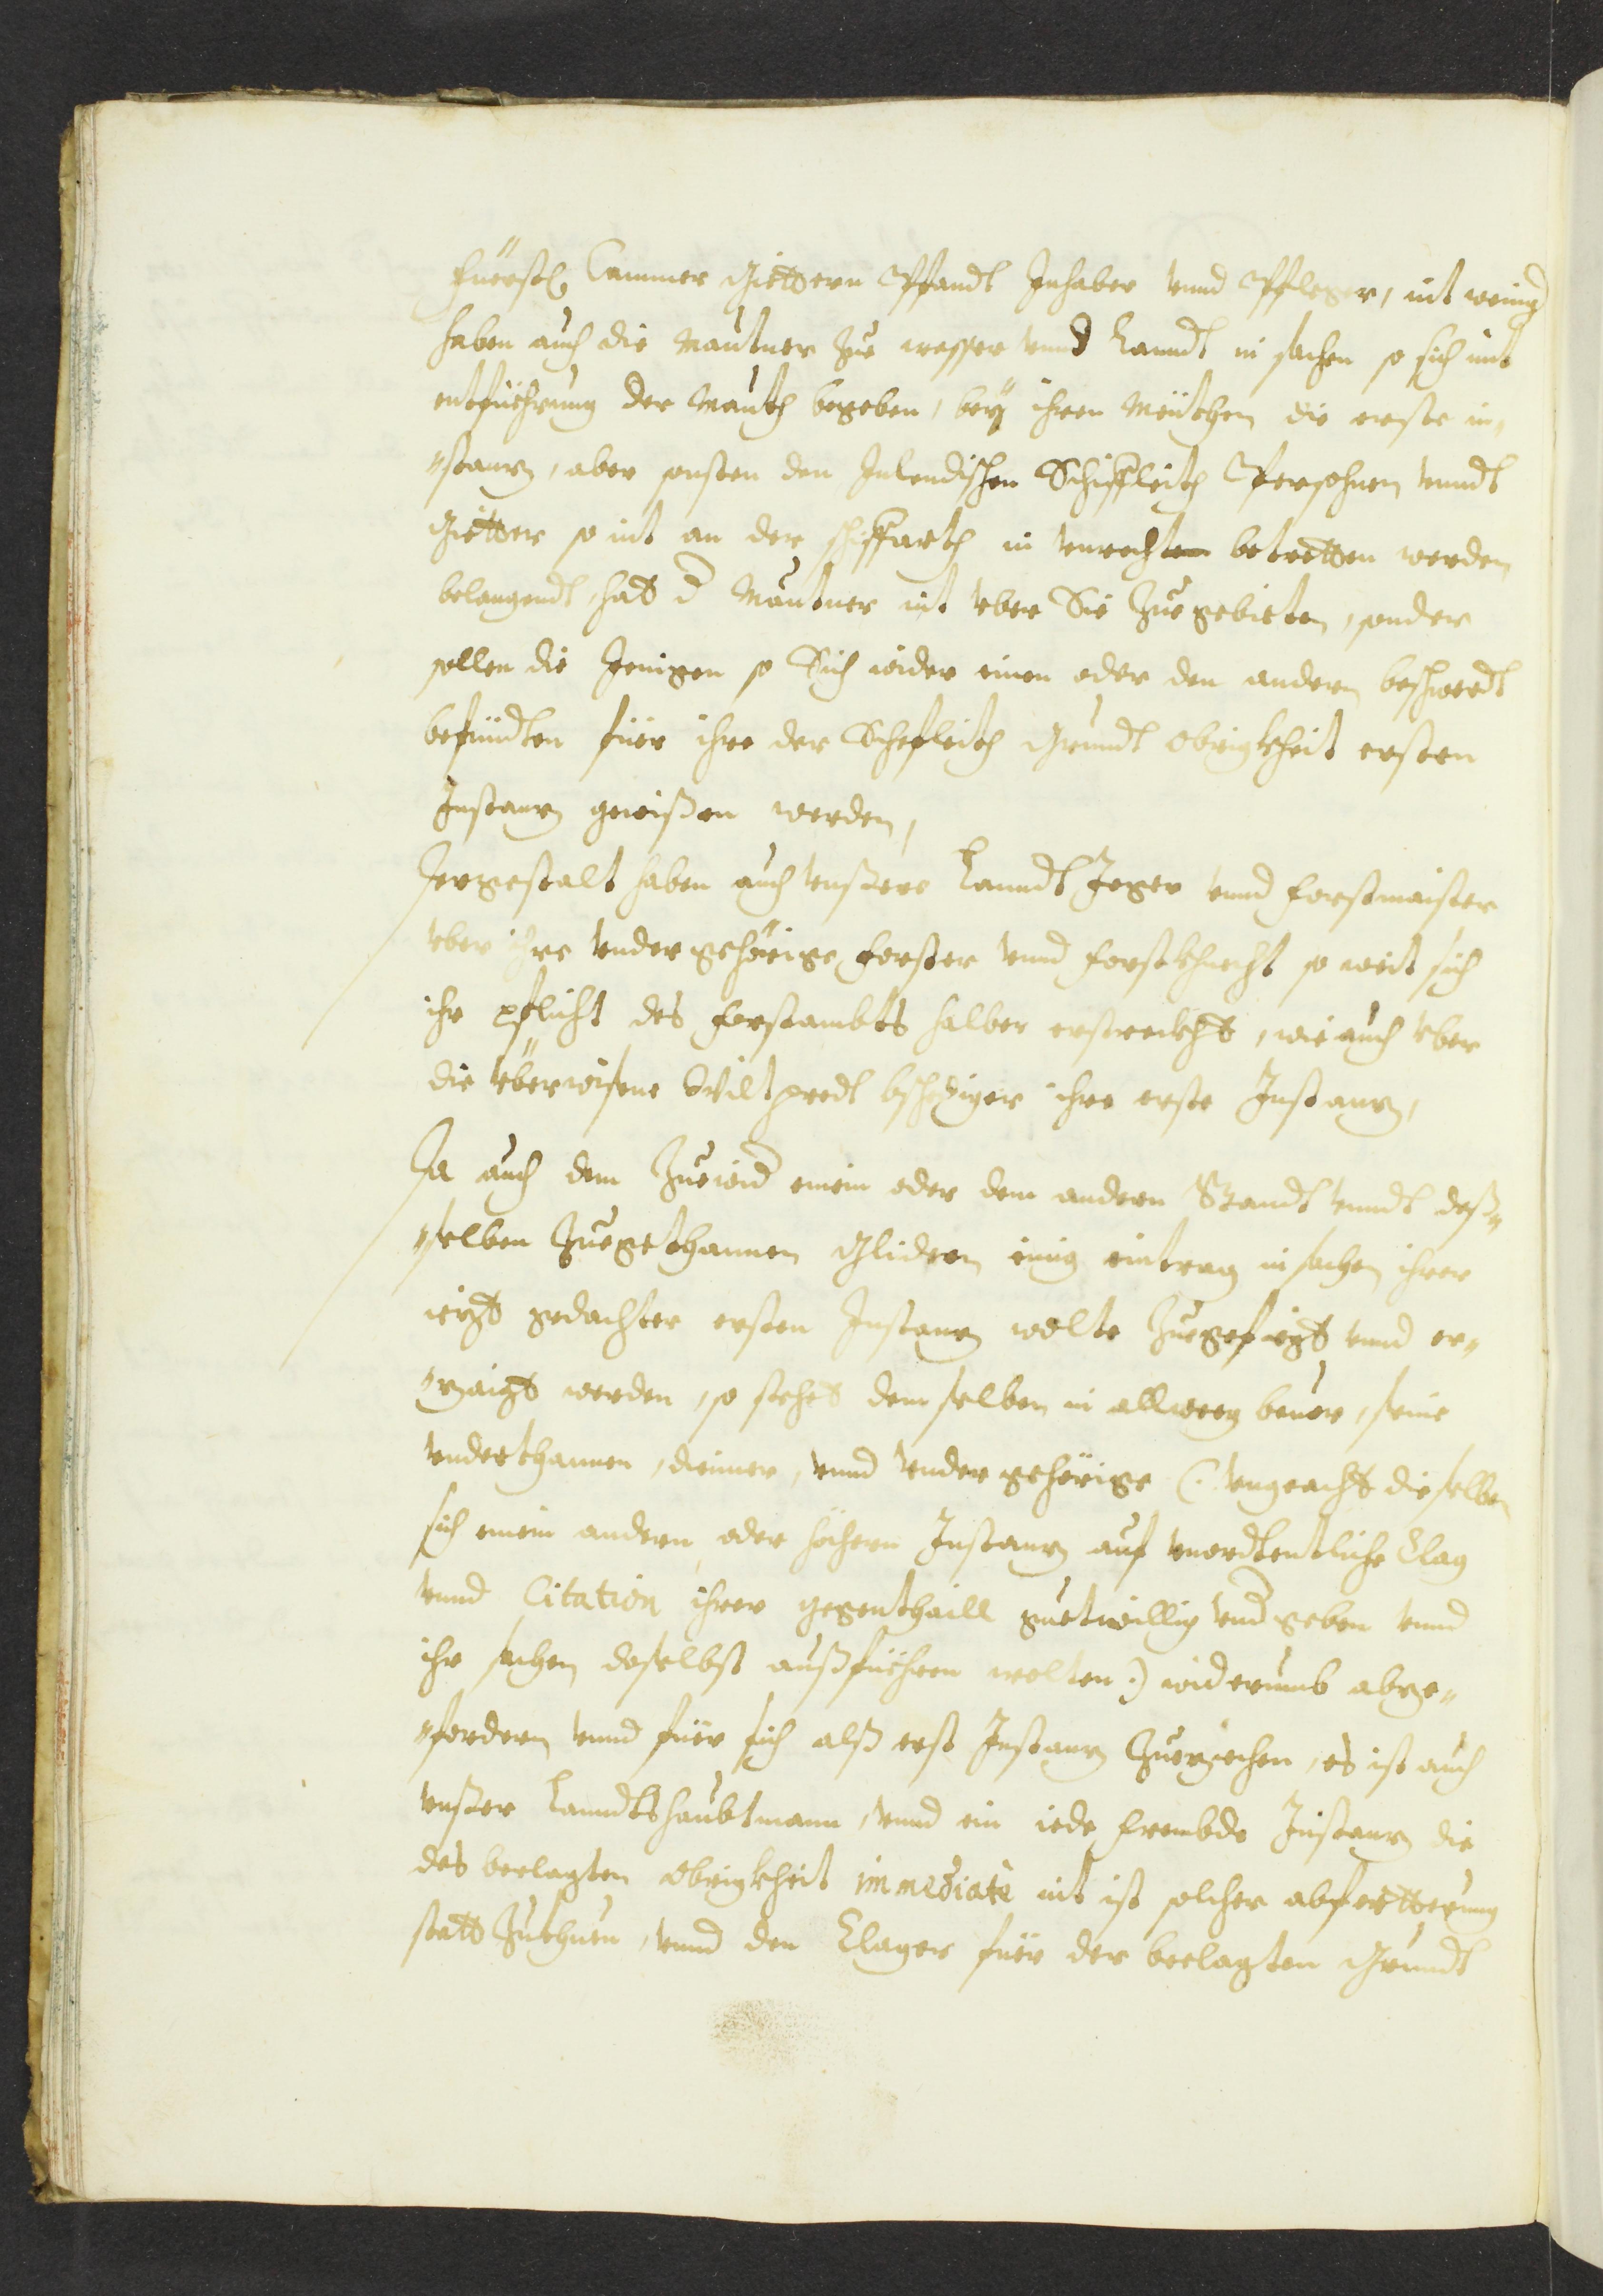 Fürstl Cammer Giettern Pfandt Inhaber vnnd Pfleger, nit wenig
haben auch die Mautner Zue wasser vnnd Lanndt in sachen so sich mit
entfüehrung der Mauth begeben, bey ihren Meüthen die erste in„
„stannz, aber sonsten den Inlendischen Schiffleith Persohnen vnndt
Gietter so nit an der schiffarth in vnrechten betretten werden
belangendt, hatt d Mautner nit vber Sie Zuegebieten, sonder
sollen die Jenigen so Sich wider einen oder den andern beschwerdt
befündten füer ihre der Schefleith Grundt Obrigkheit ersten
Instannz gewißen werden,
Jergestalt haben auch vnßere Lanndt Jeger vnnd Forstmaister
vber ihre vndergehörige Forster vnnd Forstkhnecht so weit sich
ihr pflicht des Forstambts halber erstreckht, wie auch vber
die vberwißene Wiltpredt bschediger ihre erste Instannz,
Da auch dem Zuewid einem oder dem andern Standt vnndt deß„
„selben Zuegethannen Glidern einig eintrag in sachen ihrer
iezt gedachter ersten Instannz wolte Zuegefiegt vnnd er„
„zaigt werden, so stehet demselben in allweeg beuor, seine
vnderthannen, diener, vnnd vndergehörige (: vngeacht dieselben
sich einem andern, oder höhern Instannz auf vnordtentliche Clag
vnnd Citation ihrer gegenthaill guetwillig vnd geben vnnd
ihr sachen daselbst außfüehren wolten :) widerumb abze„
„fordern vnnd füer sich alß erst Instannz Zueziehen, es ist auch
vnßer Lanndtshaubtmann, vnnd ein iede frembde Instannz die
des beclagten Obrigkheit immediatè nit ist solcher abforderung
statt Zuthuen, vnnd den Clager füer der beclagten Grundt